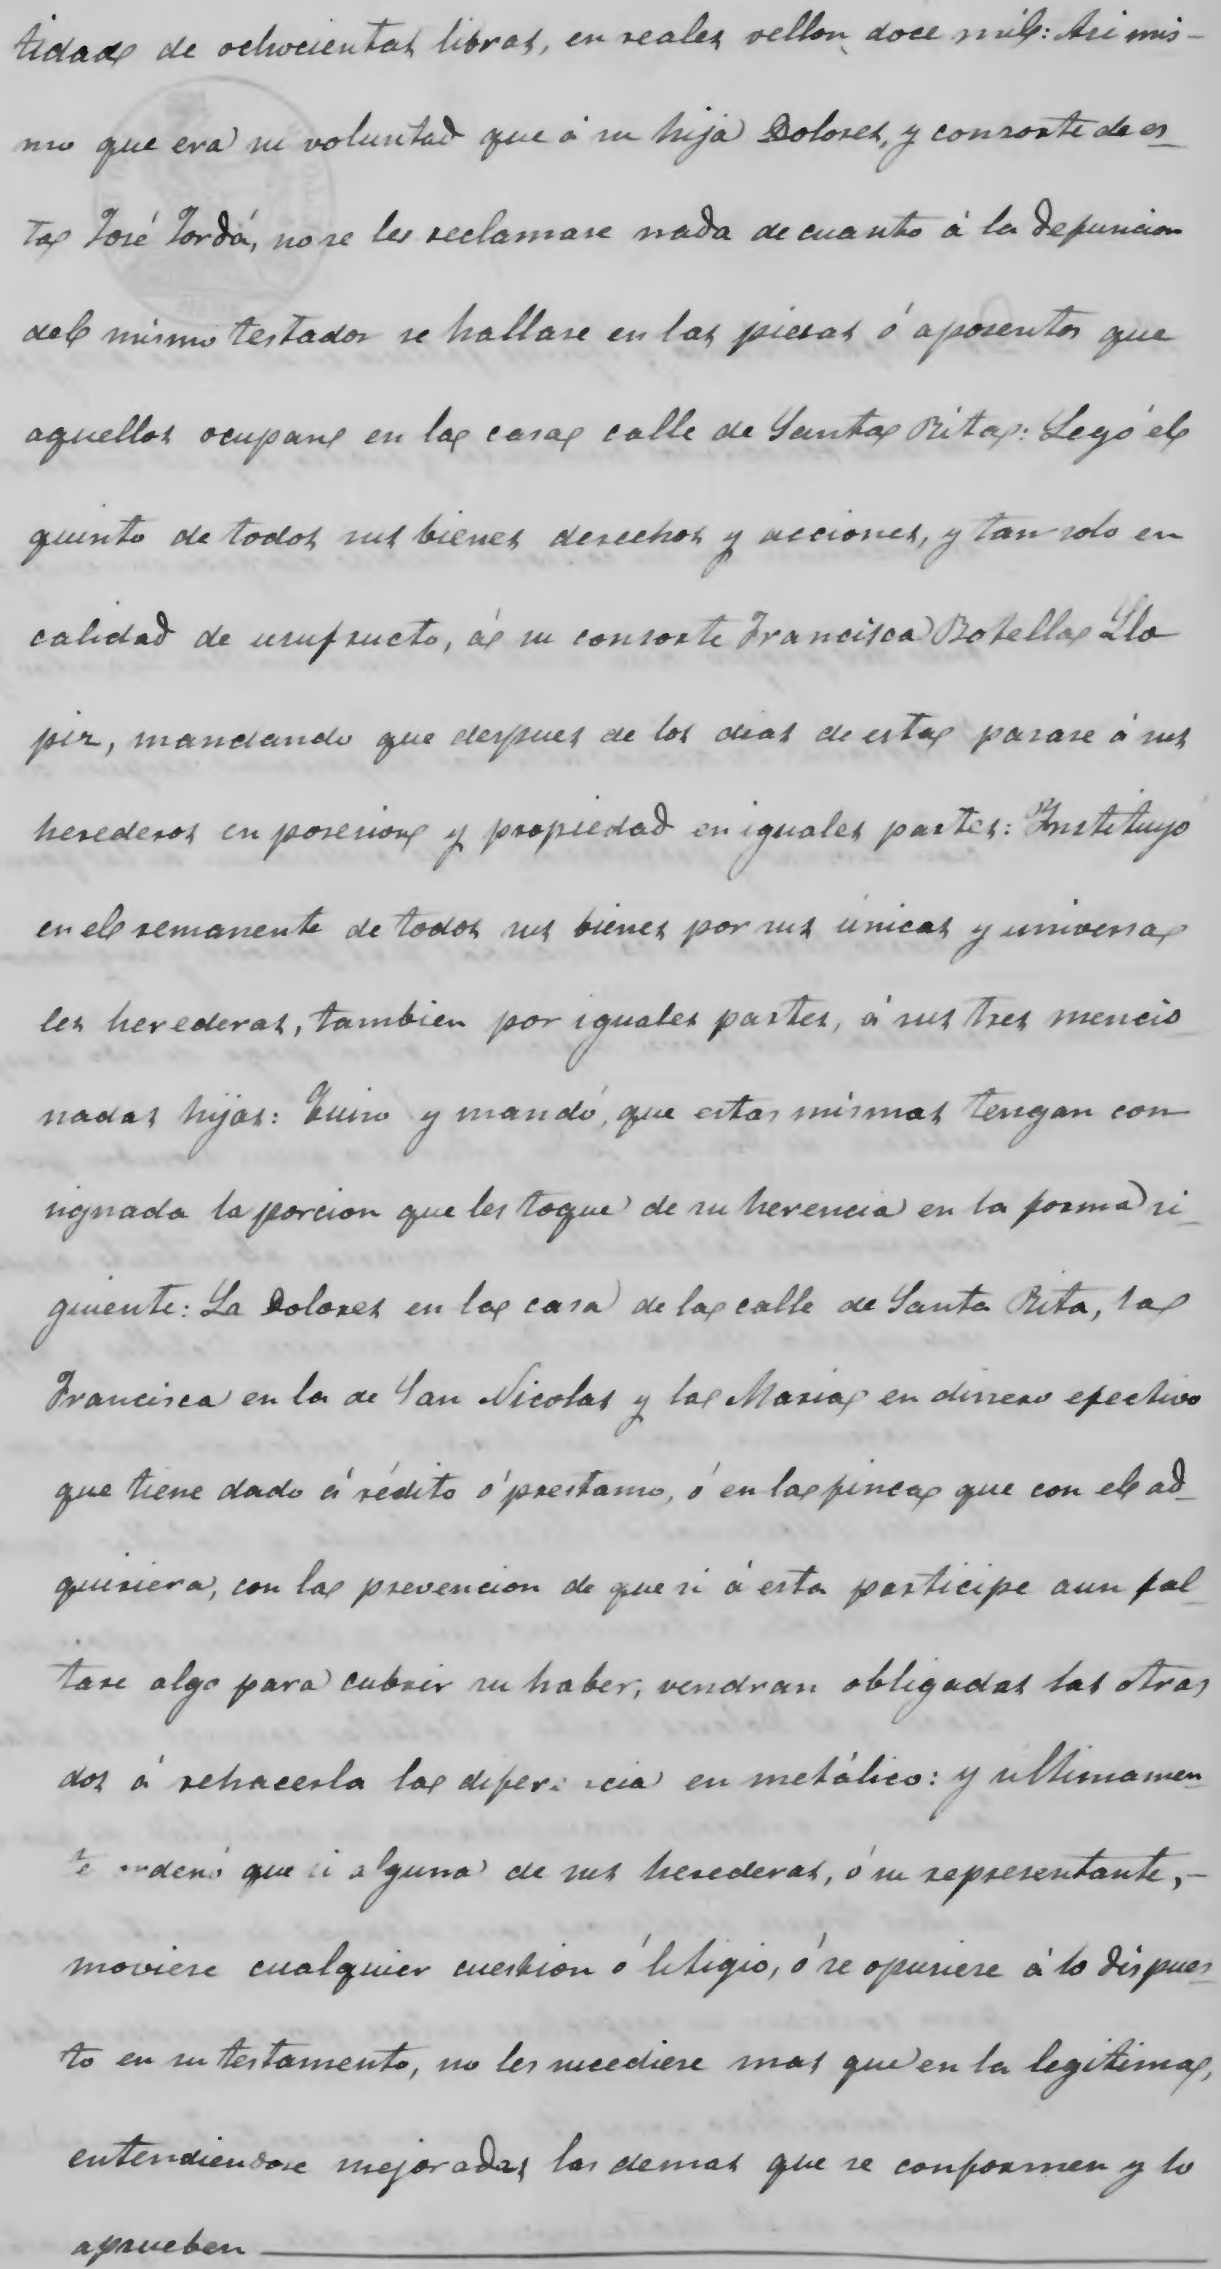 tidad de ochocientas libras, en reales vellon doce mil: Asi mis-
mo que era su voluntad que á su hija Dolores, y consorte de es-
ta José Jordá, no se les reclamase nada de cuanto á la defuncion
del mismo testador se hallase en las piezas ó aposentos que
aquellos ocupan en la casa calle de Santa Rita: Legó el
quinto de todos sus bienes derechos y acciones, y tan solo en
calidad de usufructo, á su consorte Francisca Botella Llo
piz, mandando que despues de los dias de esta pasase á sus
herederos en posesion y propiedad en iguales partes: Instituyo
en el remanente de todos sus bienes por sus únicas y universa
les herederas, tambien por iguales partes, á sus tres mencio
nadas hijas: Quiso y mandó, que estas mismas tengan con
signada la porcion que les toque de su herencia en la forma si-
guiente: La Dolores en la casa de la calle de Santa Rita, la
Francisca en la de San Nicolas y la Maria en dinero efectivo
que tiene dado á rédito ó prestamo, ó en la finca que con el ad-
quiriera, con la prevencion de que si á esta participe aun fal-
tase algo para cubrir su haber, vendran obligadas las otras
dos á rehacerla la diferencia en metálico: y ultimamen-
te ordenó que si alguna de sus herederas, ó su representante,-
moviese cualquier cuestion ó litigio, ó se opusiese á lo dispues-
to en su testamento, no les sucediese mas que en la legitima,
entendiendose mejoradas las demas que se conformen y lo
aprueben